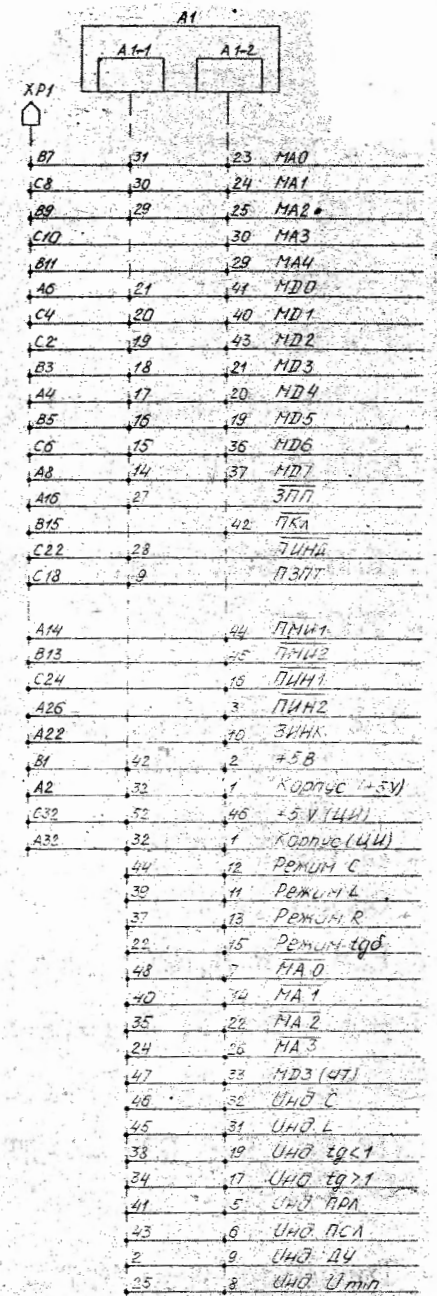 A1
A1-1 A1-2
XP1
B7 31 23 MA0
C8 30 24 MA1
B9 29 25 MA2
C10 30 MA3
B11 29 MA4
A6 21 41 MD0
C4 20 40 MD1
C2 19 43 MD2
B3 18 21 MD3
A4 17 20 MD4
B5 16 19 MD5
C6 15 36 MD6
A8 14 37 MD7
A16 27 ЗПП
B15 42 ПКл
C22 28
C18 9 ПЗПТ
A14 44 ПМИ1
B13 45 ПМИ2
C24 16 ПИН1
A26 3 ПИН2
A22 10 ЗИНК
B1 42 2 +5В
A2 33 1 Корпус (+5V)
C32 52 46 +5V (ЦИ)
A32 32 1 Корпус (ЦИ)
44 12 Режим C
39 11 Режим L
37 13 Режим R
22 15 Режим tgδ
48 7 MA0
40 14 MA1
35 22 MA2
24 26 MA3
47 33 MD3 (ЧТ)
46 32 Инд C
45 31 Инд L
38 19 Инд tg<1
34 17 Инд tg>1
41 5 Инд ПРЛ
43 6 Инд ПСЛ
2 9 Инд ДУ
25 8 Инд Umin